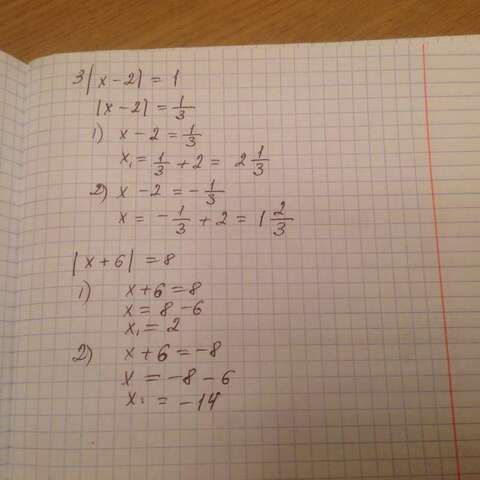 3|x-2| = 1
|x-2| = 1/3
1) x - 2 = 1/3
x₁ = 1/3 + 2 = 2 1/3
2) x - 2 = - 1/3
x = - 1/3 + 2 = 1 2/3
|x+6| = 8
1) x+6 = 8
x = 8 - 6
x₁ = 2
2) x+6 = -8
x = -8 - 6
x₁ = -14